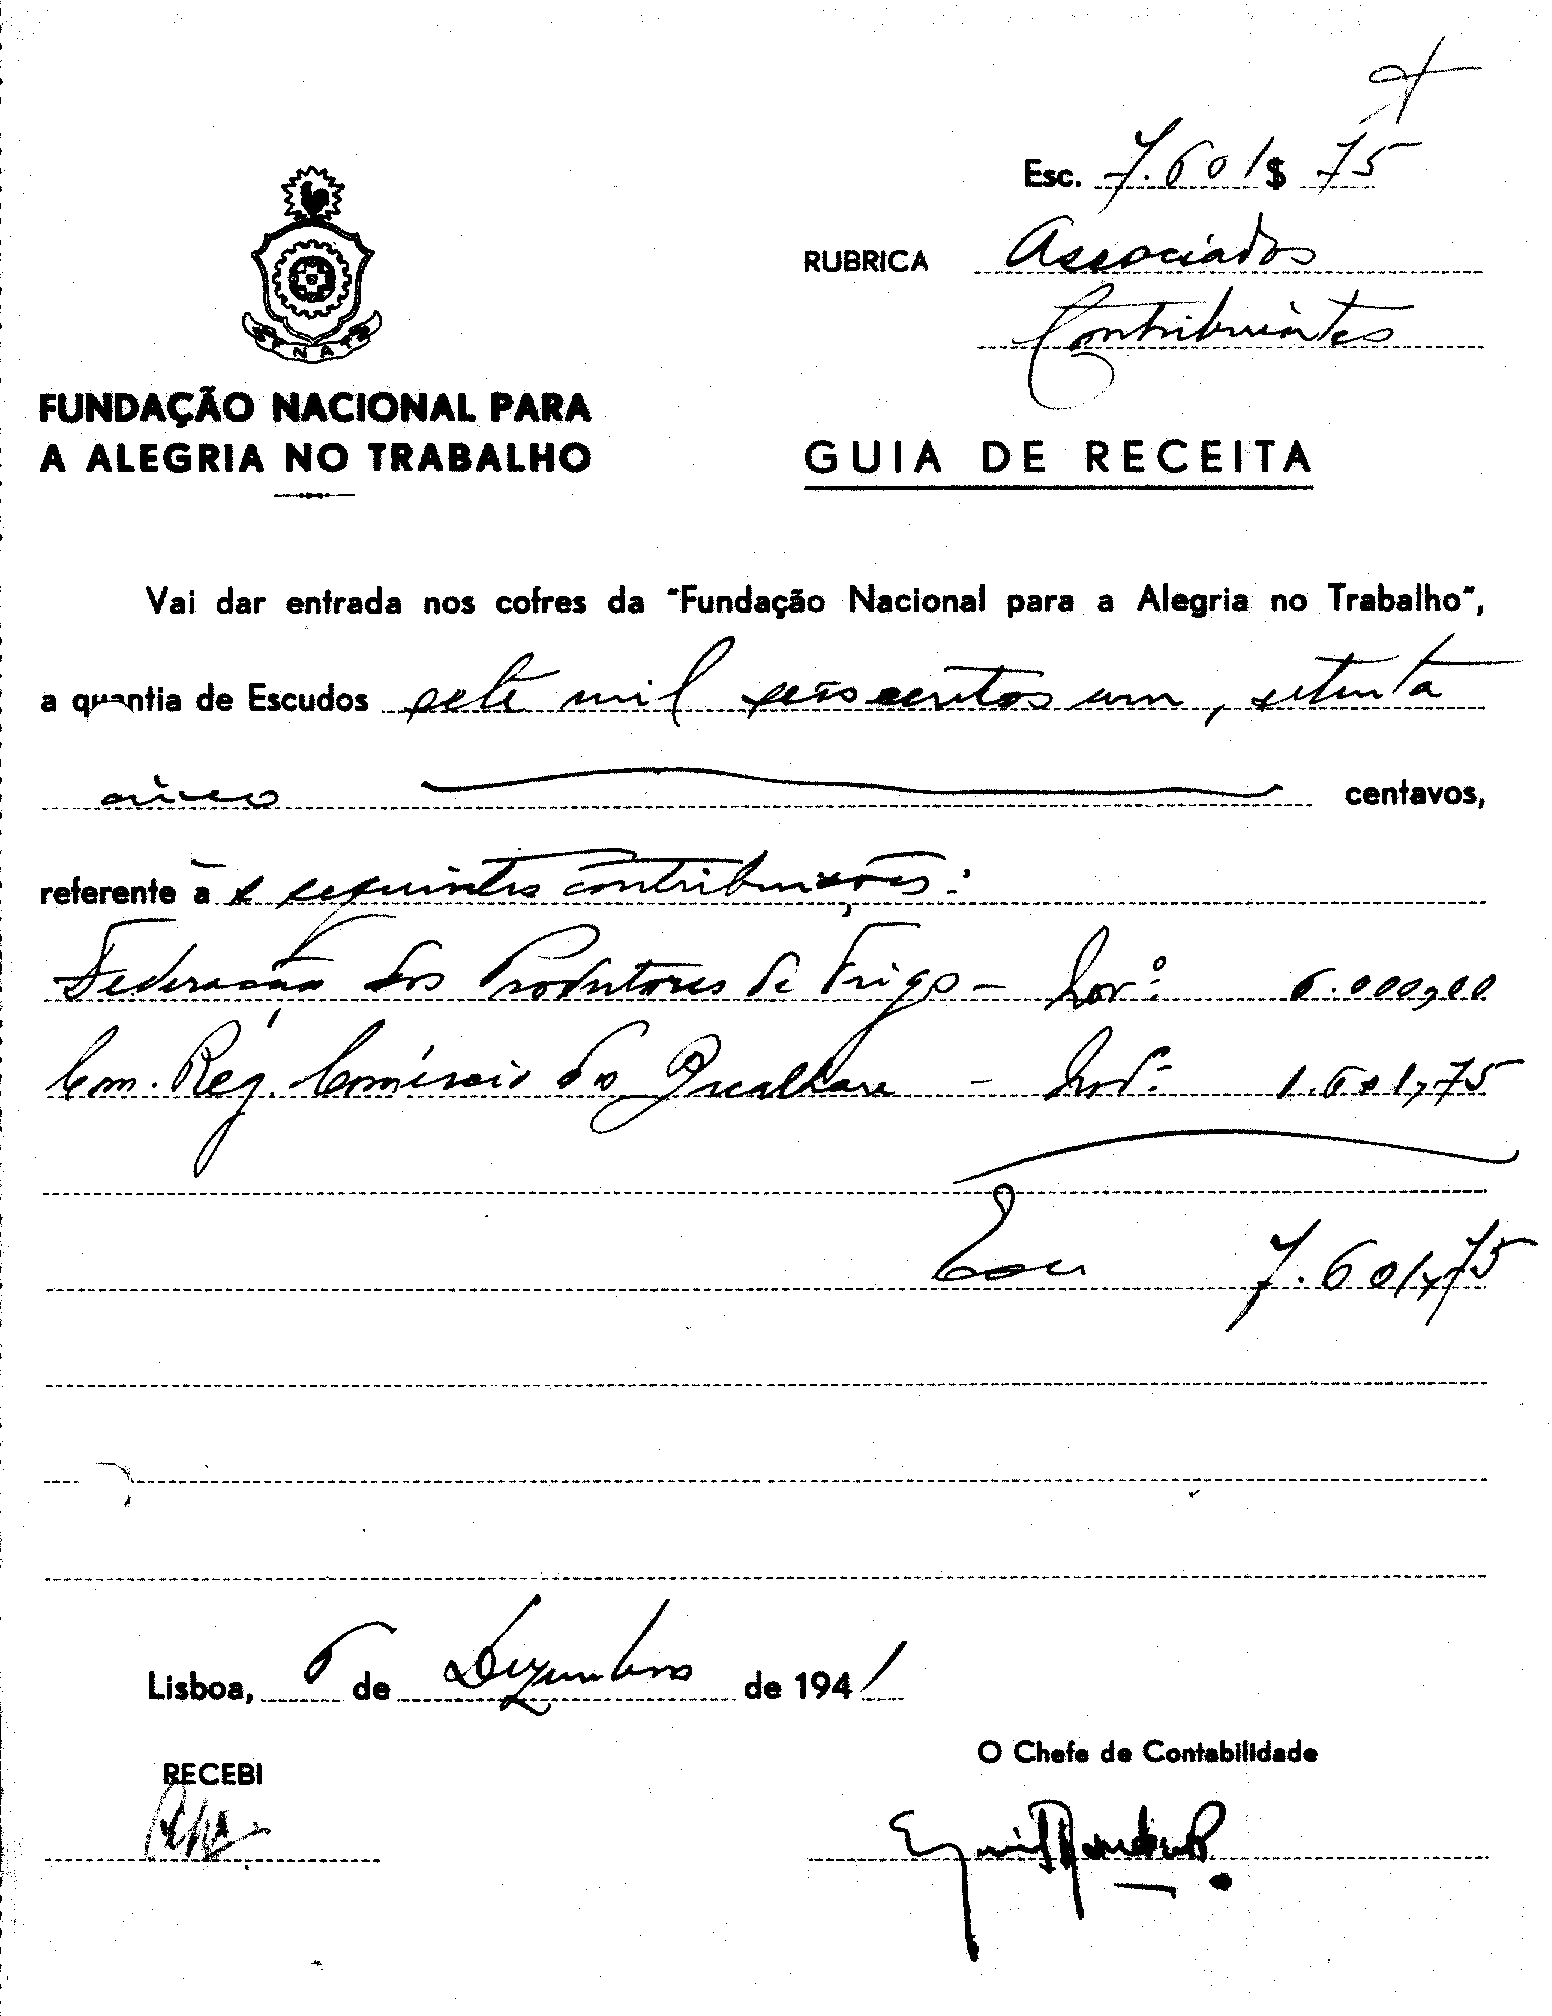 Esc. 7.601$75
RUBRICA Associados
Contribuintes
FNAT
FUNDAÇÃO NACIONAL PARA
A ALEGRIA NO TRABALHO
GUIA DE RECEITA
Vai dar entrada nos cofres da "Fundação Nacional para a Alegria no Trabalho",
a quantia de Escudos sete mil seiscentos um, setenta
cinco centavos,
referente às seguintes contribuições:
Federação dos Produtores de Trigo — Nov.º 6.000,00
Com. Reg. Comércio do Bacalhau — Nov.º 1.601,75
Esc. 7.601,75
Lisboa, 6 de Dezembro de 1941
RECEBI
O Chefe de Contabilidade